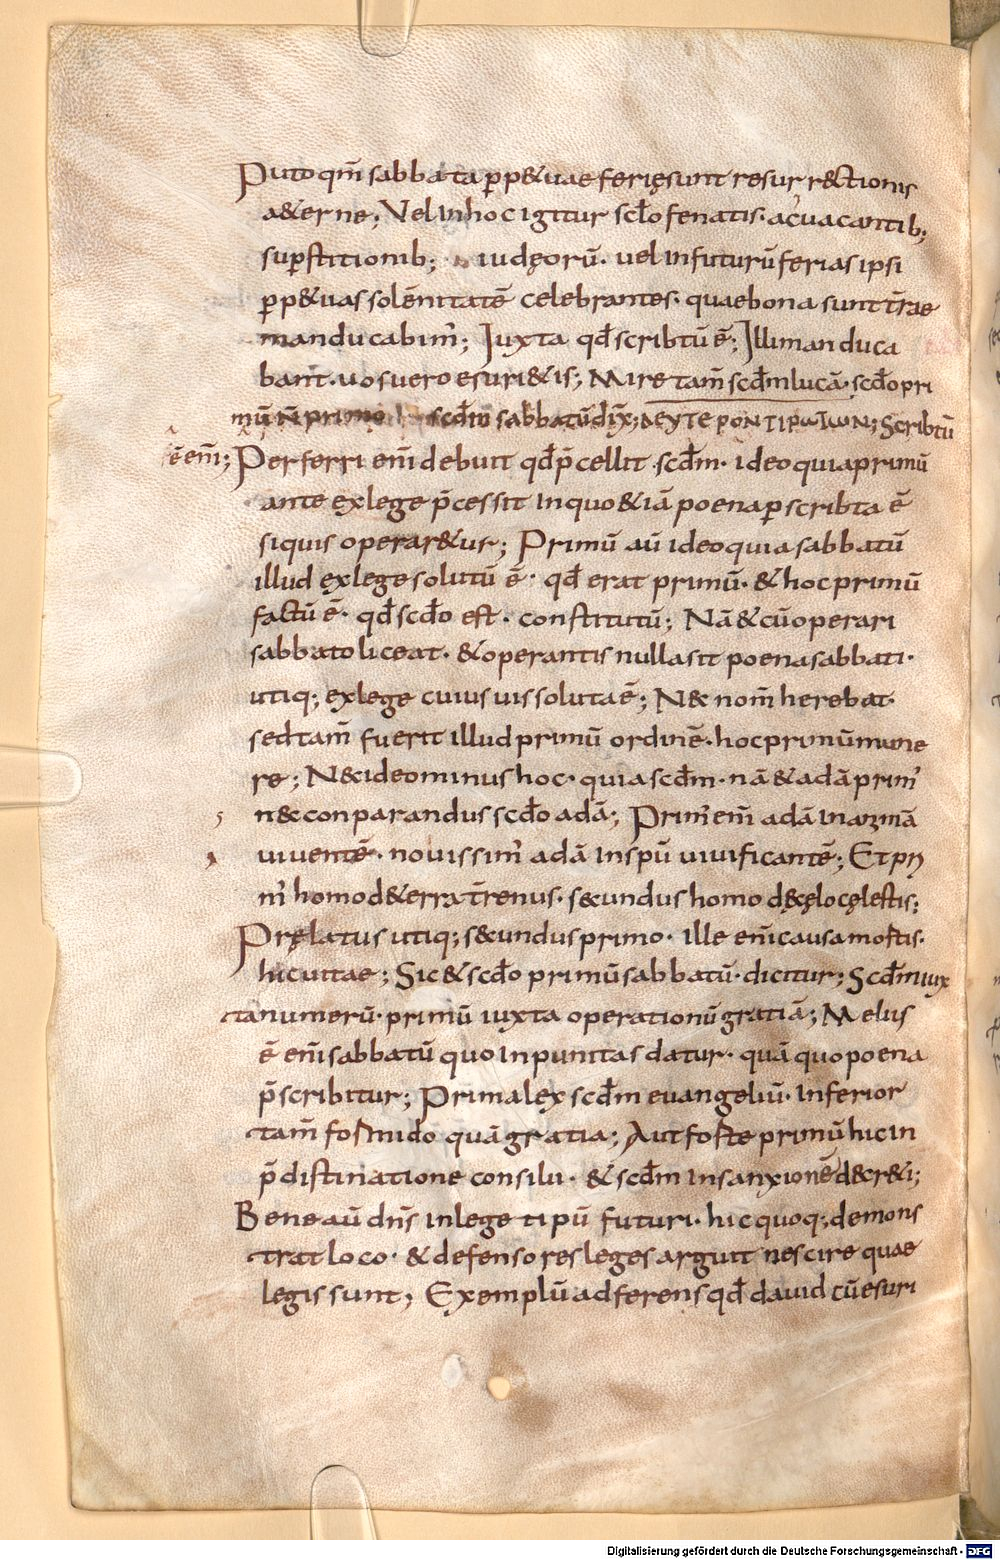 Puto qm̄ sabbata ꝑp&uae feriȩ sunt resurr&tionis
a&erne; Vel in hoc igitur scło fenatis· ac uacantib;
suꝑstitionib; iudȩorū· uel in futurū ferias ipsi
ꝑp&uas solēnitatē celebrantes· quae bona sunt t̄rae
manducabim'; Iuxta qđ scribtū ē; Illi manduca
bant· uos uero esuri&is; Mire tam̄ scđm lucā· scđo pri
mū n̄ primo scđm sabbatū dix̄; ΔΕΥΤΕΡΟΝ ΤΙ ΡωΤωΝ; Scribtū
ē em̄; Perferri em̄ debuit qđ p̄cellit scđm· ideo quia primū
ante ex lege p̄cessit in quo & iā poena ꝑscribta ē
si quis operar&ur; Primū aū ideo quia sabbatū
illud ex lege solutū ē· qđ erat primū· & hoc primū
factū ē· qđ scđo est· constitutū; Nā & cū operari
sabbato liceat· & operantis nulla sit poena sabbati·
utiq; ex lege cuius uis soluta ē; N& nom̄ herebat
sed tam̄ fuerit illud primū ordinē· hoc primū mune
re; N& ideo minus hoc· quia scđm· nā & adā prim'
n& conparandus scđo adā; Prim' em̄ adā in animā
uiuentē· nouissim' adā in spū uiuificantē; Et pri
m' homo d& erra t̄renus· secundus homo dȩ cȩlo cȩlestis;
Prȩlatus utiq; secundus primo· ille em̄ causa mortis·
hic uitae; Sic & scđo primū sabbatū· dicitur; Scđm iux
ta numerū· primū iuxta operationū gratiā; Melius
ē em̄ sabbatū quo inpunitas datur· quā quo poena
p̄scribitur; Prima lex scđm euangeliū· Inferior
tam̄ formido quā gratia; Aut forte primū hic in
p̄distinatione consilii· & scđm in sanxionē decr&i;
Bene aū dn̄s in lege tipū futuri· hic quoq; demons
trat loco· & defensores leges arguit nescire quae
legis sunt; Exemplū adferens qđ dauid cū esuri
Digitalisierung gefördert durch die Deutsche Forschungsgemeinschaft - DFG